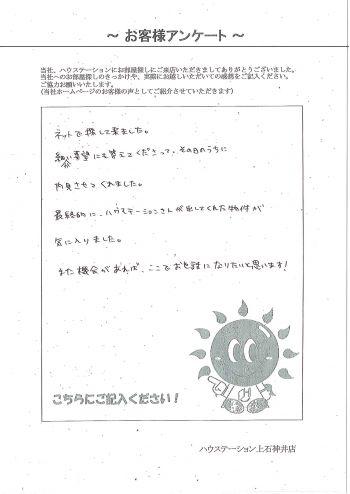 ～ お客様アンケート ～
当社、ハウステーションにお部屋探しにご来店いただきましてありがとうございました。
当社へのお部屋探しのきっかけや、実際にお越しいただいての感想をご記入ください。
ご協力お願いいたします。
(当社ホームページのお客様の声としてご紹介させていただきます)
ネットで探して来ました。
細い要望にも答えてくださって、その日のうちに
内見させてくれました。
最終的に、ハウステーションさんが出してくれた物件が
気に入りました。
また機会があれば、ここでお世話になりたいと思います!
こちらにご記入ください!
ハウステーション上石神井店